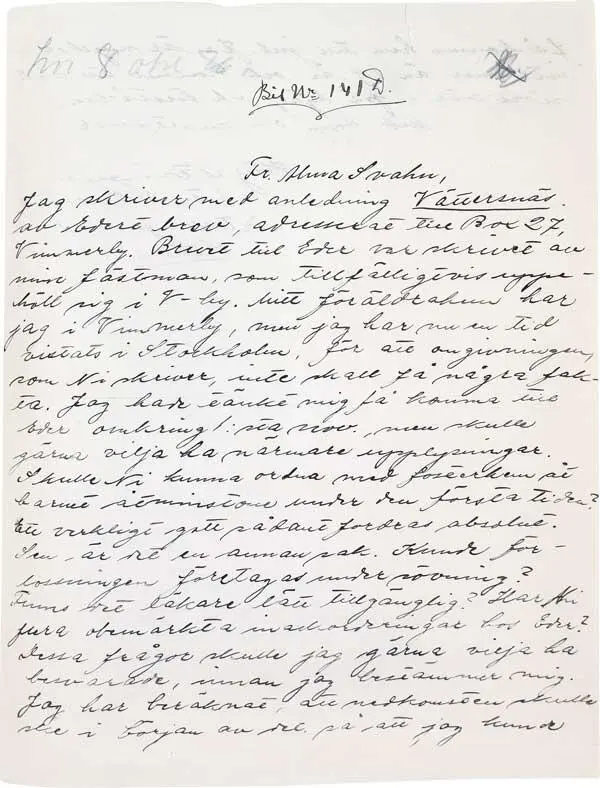 Bil Nr 141 D.
Fr. Alma Svahn,
Jag skriver med anledning Vättersnäs.
av Edert brev, adresserat till Box 27,
Vimmerby. Brevet till Eder var skrivet av
min fästman, som tillfälligtvis uppe-
höll sig i V-by. Mitt föräldrahem har
jag i Vimmerby, men jag har nu en tid
vistats i Stockholm, för att omgivningen,
som Ni skriver, inte skall få några fak-
ta. Jag hade tänkt mig få komma till
Eder omkring 1:sta nov. men skulle
gärna vilja ha närmare upplysningar.
Skulle Ni kunna ordna med fosterhem åt
barnet åtminstone under den första tiden?
Ett verkligt gott sådant fordras absolut.
Sen är det en annan sak. Kunde för-
lossningen företagas under sövning?
Finns det läkare lätt tillgänglig? Har Ni
flera inackorderingar hos Eder?
Dessa frågor skulle jag gärna vilja ha
besvarade, innan jag bestämmer mig.
Jag har beräknat, att nedkomsten skulle
ske i början av dec. så att jag kunde